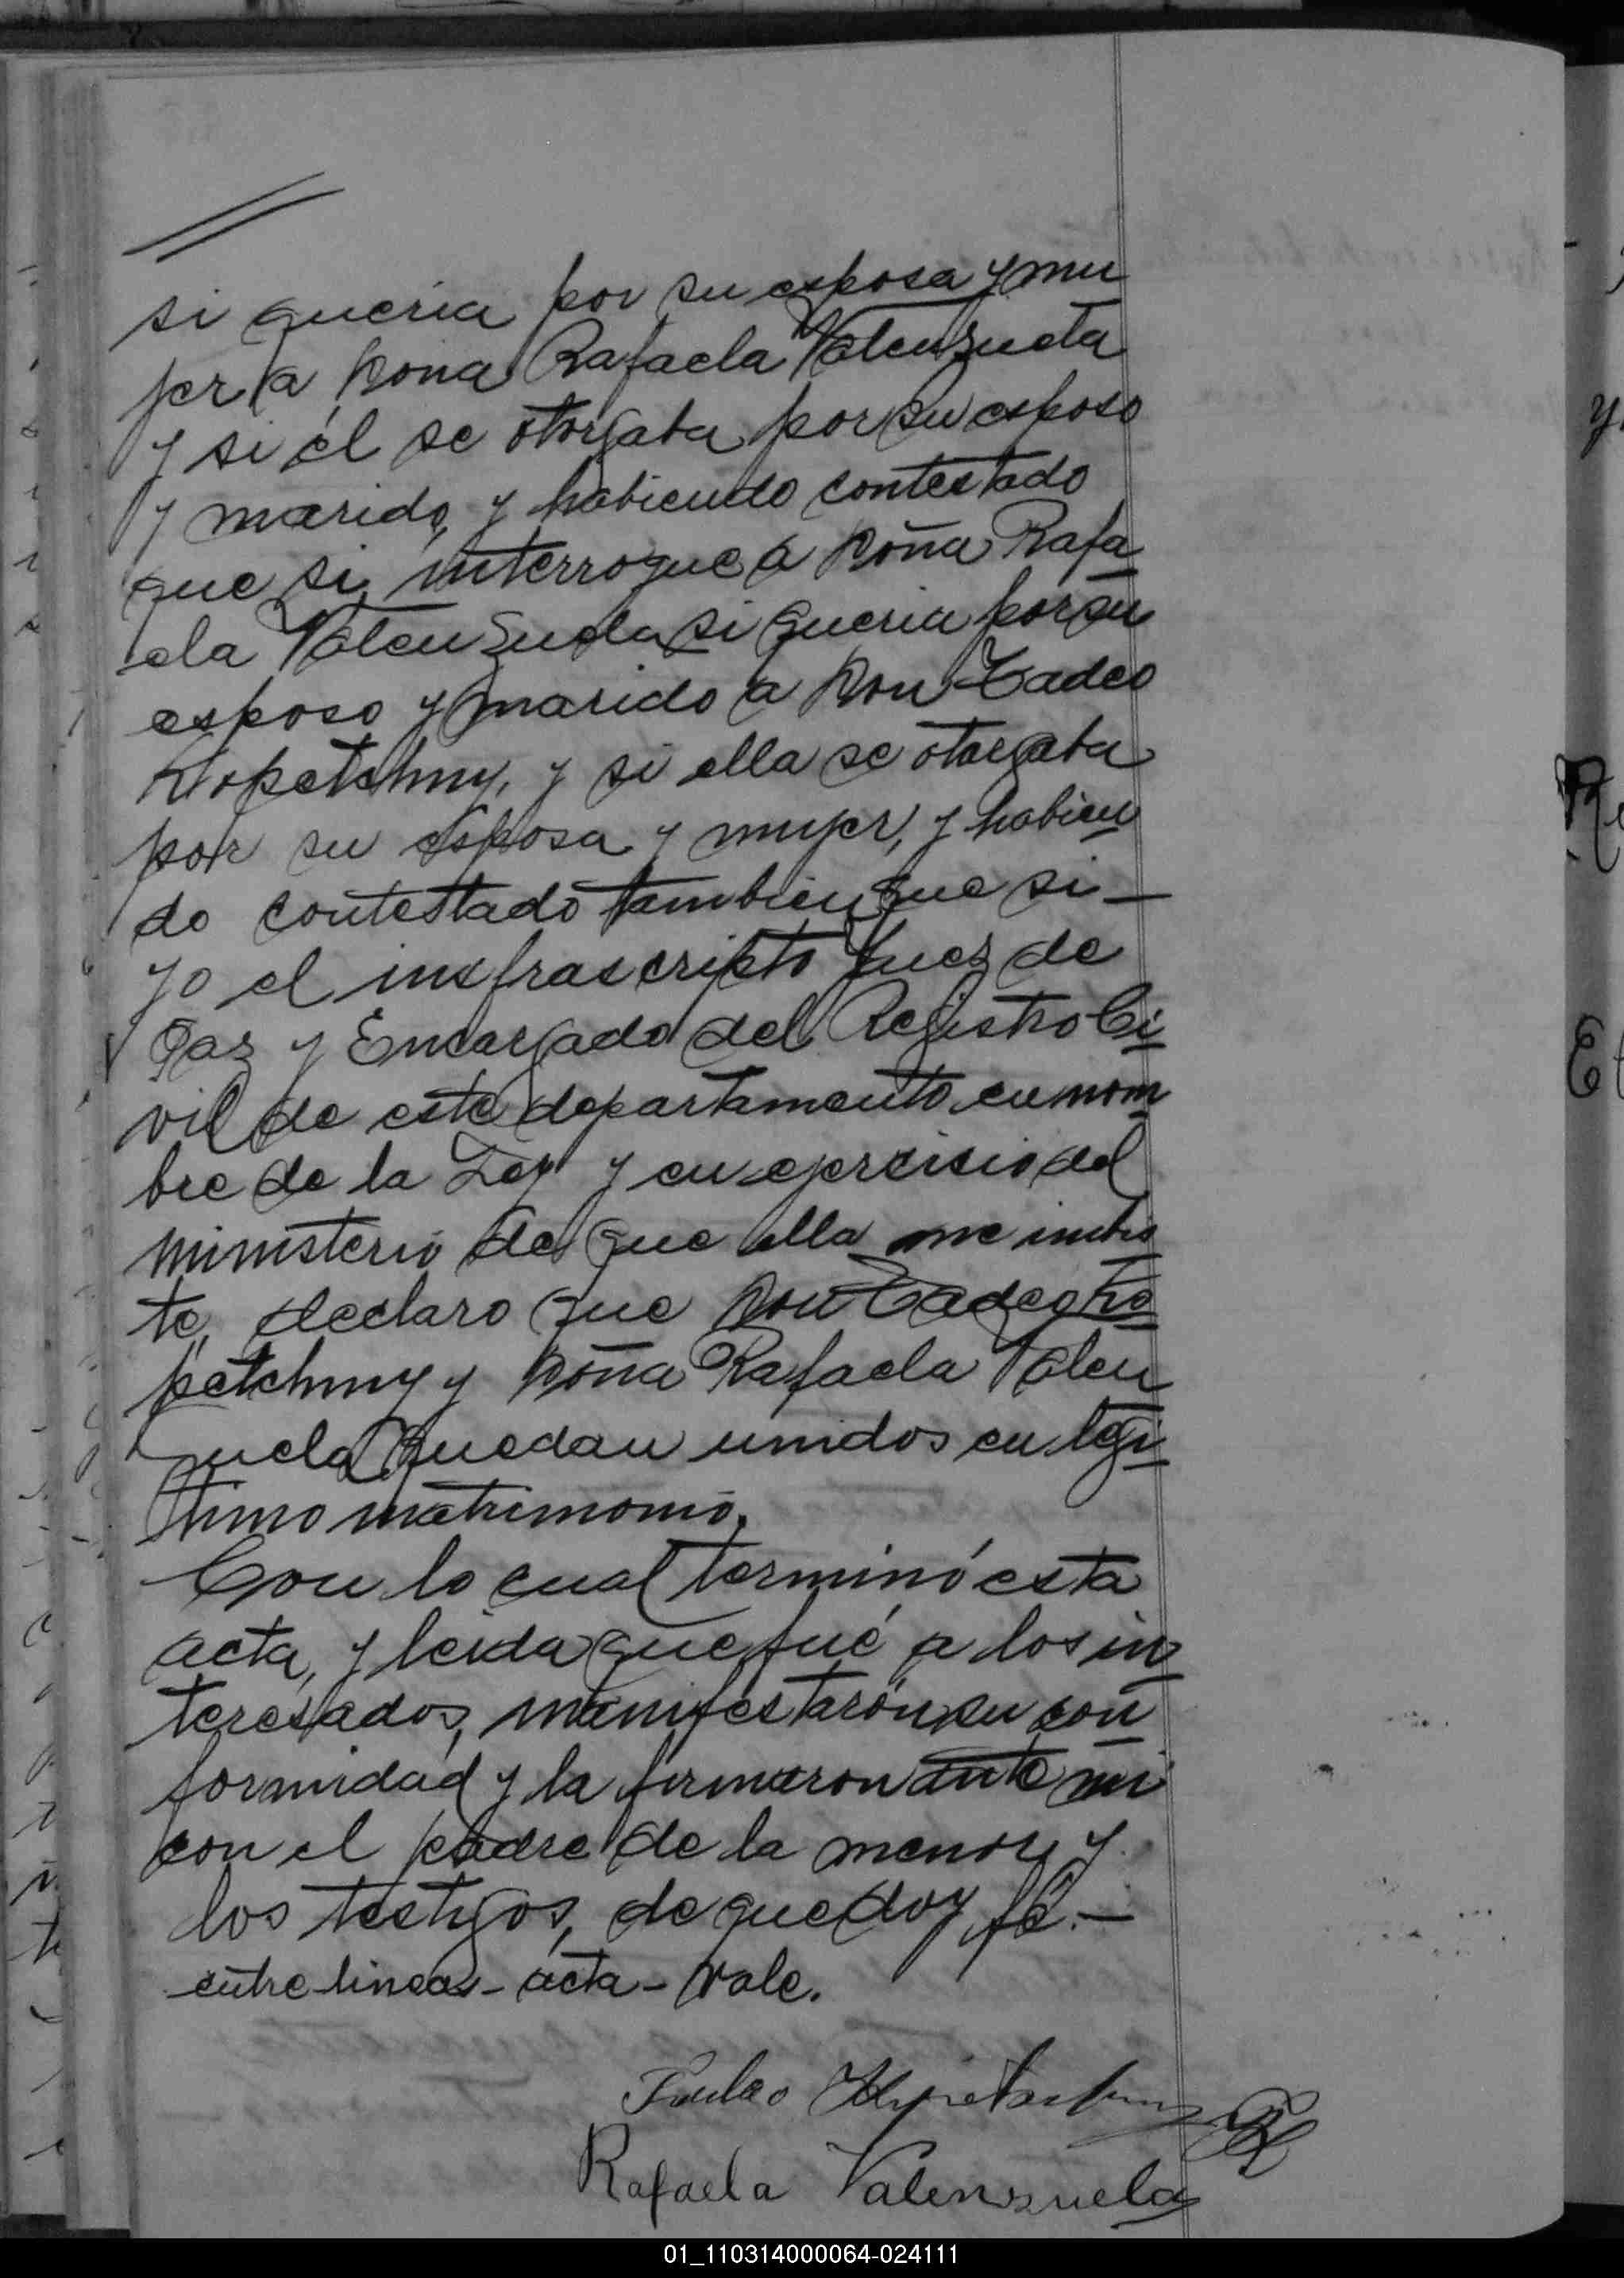 si queria por su esposa y mu
jer a Doña Rafaela Valenzuela
y si él se otorgaba por su esposo
y marido, y habiendo contestado
que si, interrogue a Doña Rafa
ela Valenzuela si queria por su
esposo y marido a Don Tadeo
Kopetchny, y si ella se otorgaba
por su esposa y mujer, y habien
do contestado tambien que si —
yo el insfrascripto Juez de
Paz y Encargado del Registro Ci
vil de este departamento en nom
bre de la Ley y en ejercisio del
ministerio de que ella me inbis
te, declaro que Don Tadeo Ko
petchny y Doña Rafaela Valen
zuela quedan unidos en legi
timo matrimonio.
Con lo cual terminó esta
acta, y leida que fué a los in
teresados, manifestarón su con
formidad y la firmaron ante mi
con el padre de la menor y
los testigos, de que doy fé. —
entre lineas - acta - vale.
Tadeo
Rafaela Valenzuela
01_110314000064-024111